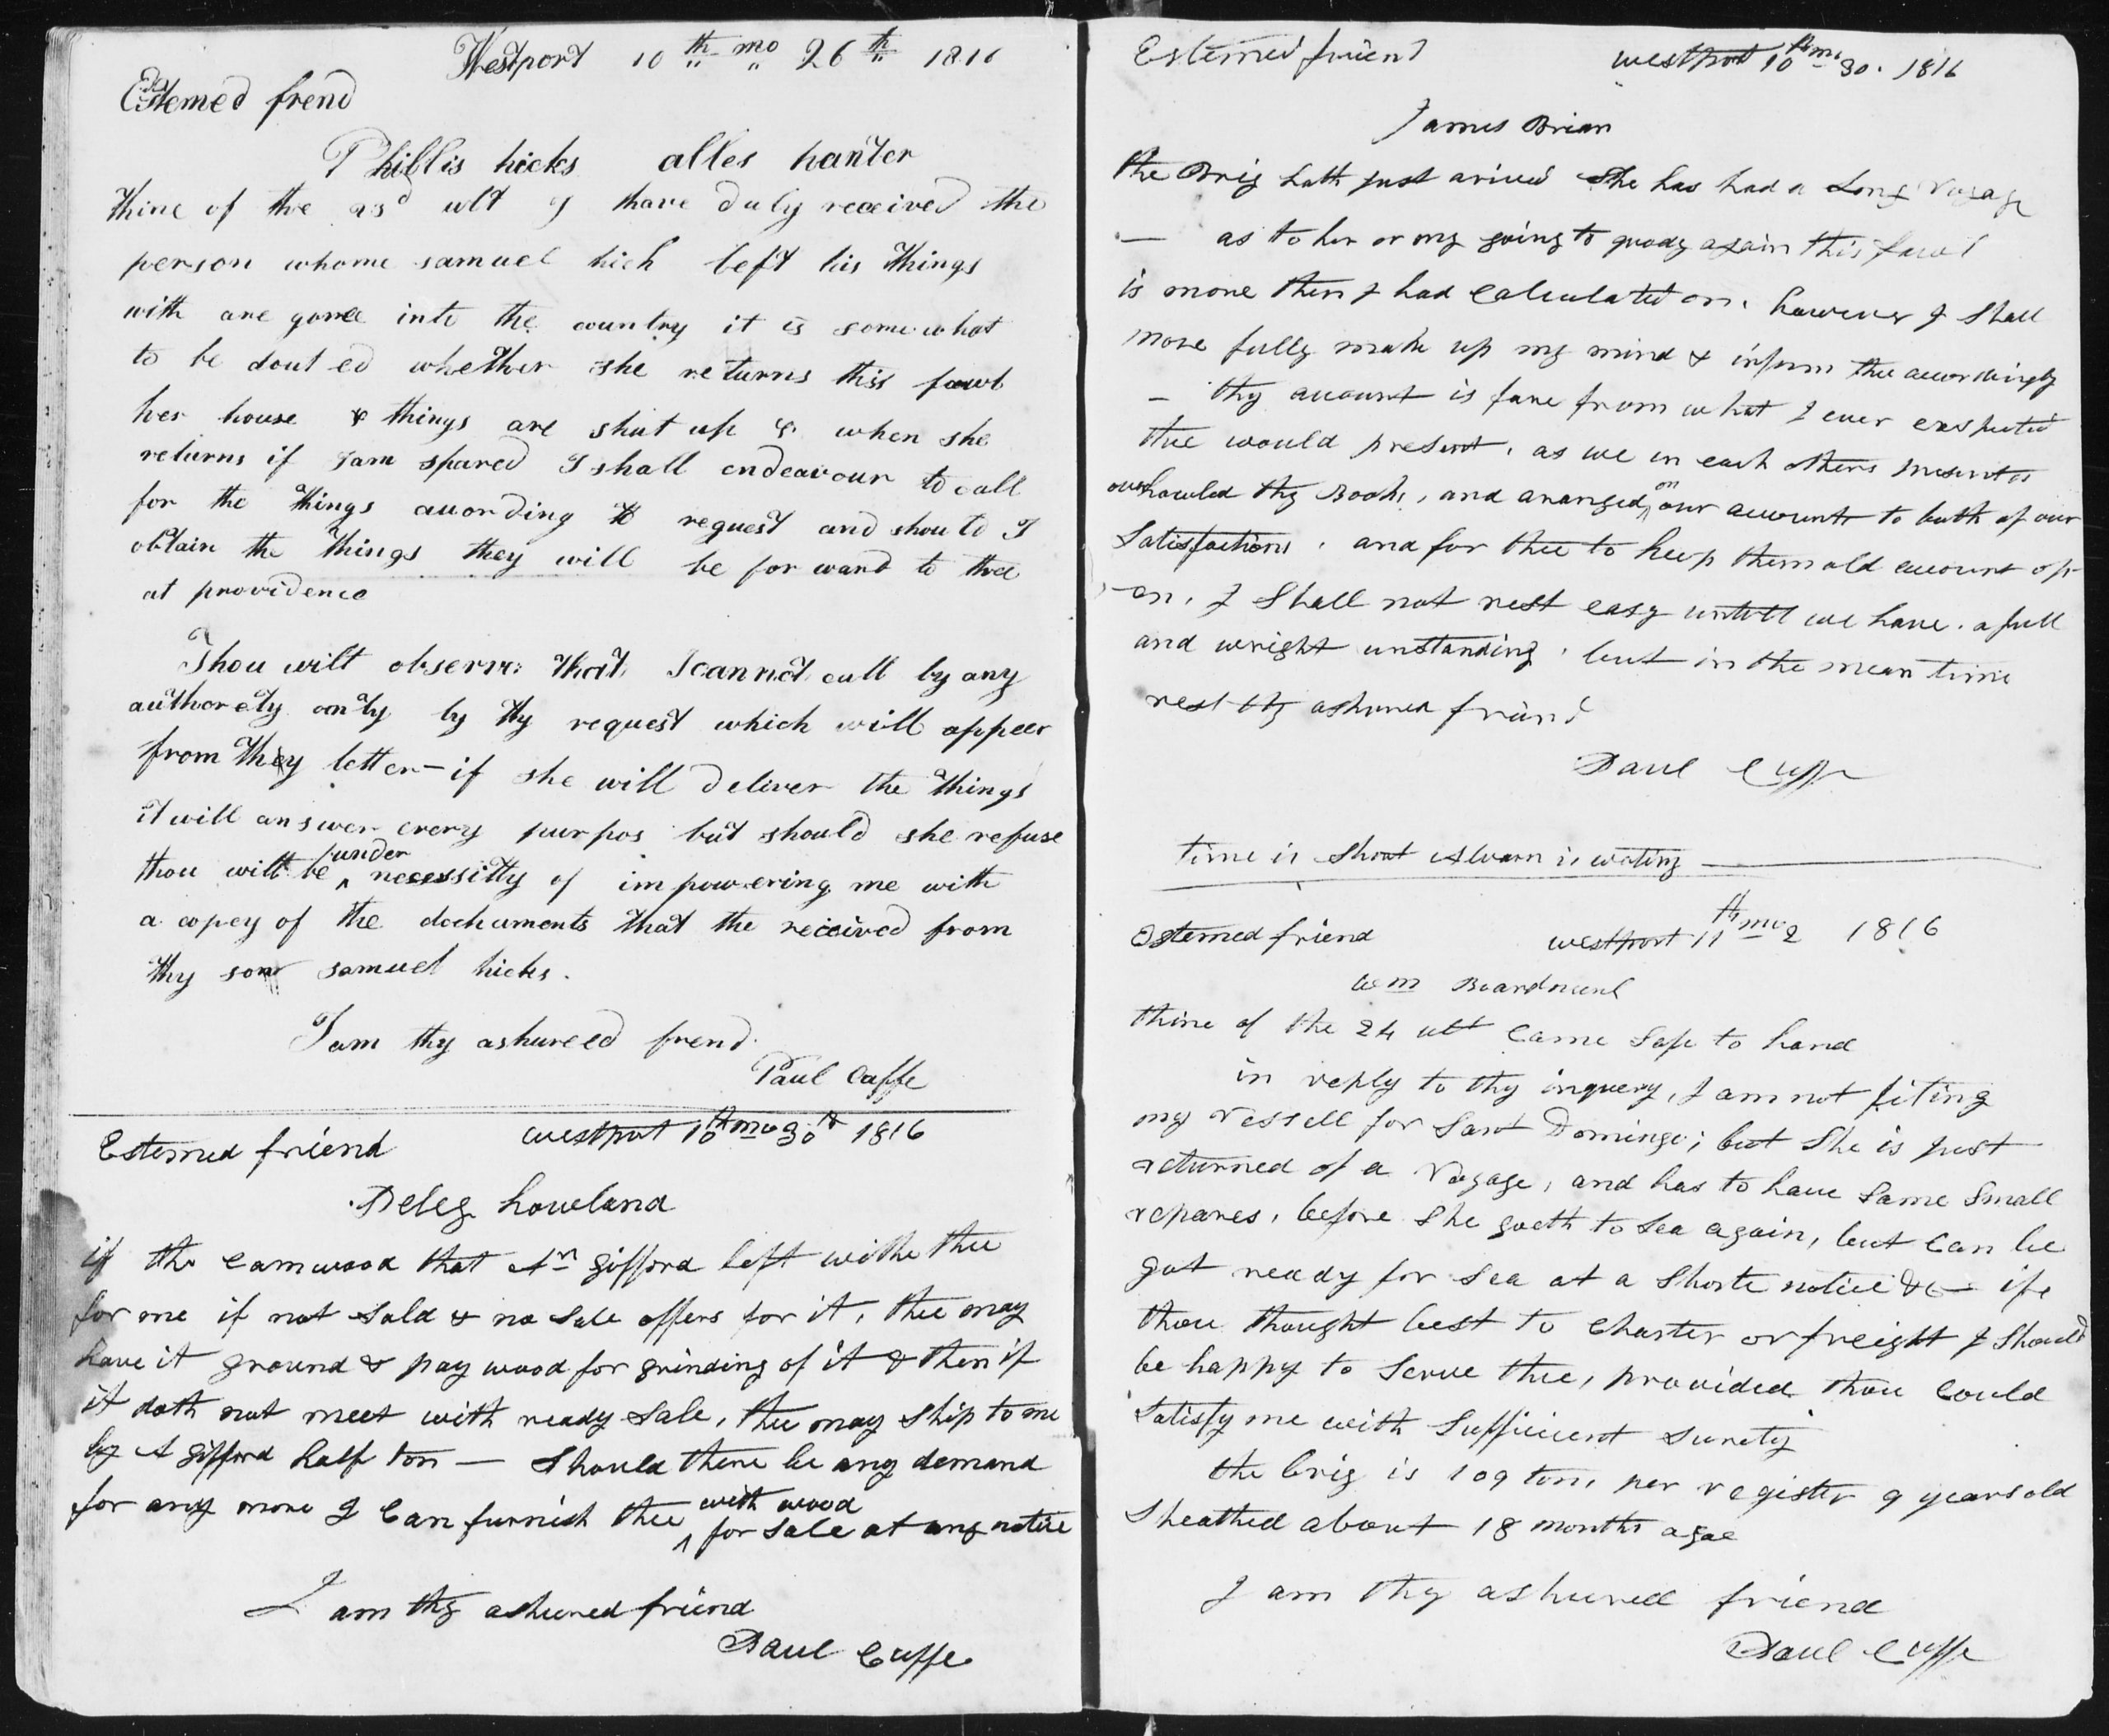 Westport 10th mo 26th 1816
Estemed frend
Phillis hicks alles hanter
thine of the 23d ult I have duly received the
person whome samuel hick left his things
with are gone into the country it is somewhat
to be douted whether she returns this fawl
her house & things are shut up & when she
returns if I am spared I shall endeavour to call
for the things according to request and should I
obtain the things they will be forward to thee
at providence
Thou wilt observe that I cannot call by any
authorety only by thy request which will appeer
from they letter - if she will deliver the things
it will answer every purpos but should she refuse
thou wilt be under necessitty of impowering me with
a copey of the dochuments that the received from
thy son samuel hicks.
I am thy ashureed frend.
Paul Cuffe
Estemed friend westport 10th mo 30th 1816
Peleg howland
if the camwood that An gifford left withe thee
for me if not sold & no sale offers for it, thee may
have it ground & pay wood for grinding of it & then if
it doth not meet with ready sale, thee may ship to me
by A gifford half ton — Should there be any demand
for any more I can furnish thee with wood for sale at any notice
I am thy ashured friend
Paul Cuffe
Estemed friend westport 10th mo 30. 1816
James Brian
the Brig hath just arived She has had a Long Voyage
— as to her or my going to quody again this fawl
is more then I had calculated on. however I Shall
more fully make up my mind & inform thee accordingly
- thy account is fare from what I ever exspected
thee would present, as we in each others presents
overhowled thy Books, and arranged on our accounts to both of our
Satisfactions. and for thee to keep them old account op-
-en, I Shall not rest easy untill we have a full
and wright unstanding. but in the mean time
rest thy ashured friend
Paul Cuffe
time is Short Alvarn is waiting
Estemed friend westport 11th mo 2 1816
Wm Boardment
thine of the 24 ult came Safe to hand
in reply to thy inquery, I am not fiting
my vessell for Sant Domingo; but She is just
returned of a Voyage, and has to have Some Small
repares, before She goeth to Sea again, but can be
got ready for Sea at a Shorte notice &c — if
thou thought best to Charter or freight I Should
be happy to Serve thee, provided thou Could
Satisfy me with Sufficient Surety
the brig is 109 tons per register 9 years old
Sheathed about 18 months agoe
I am thy ashured friend
Paul Cuffe